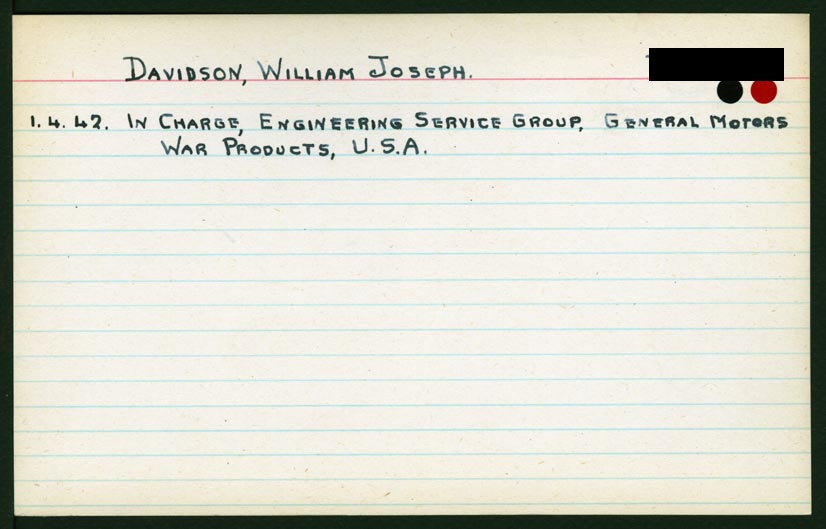 DAVIDSON, WILLIAM JOSEPH.
1.4.42. IN CHARGE, ENGINEERING SERVICE GROUP, GENERAL MOTORS
WAR PRODUCTS, U.S.A.